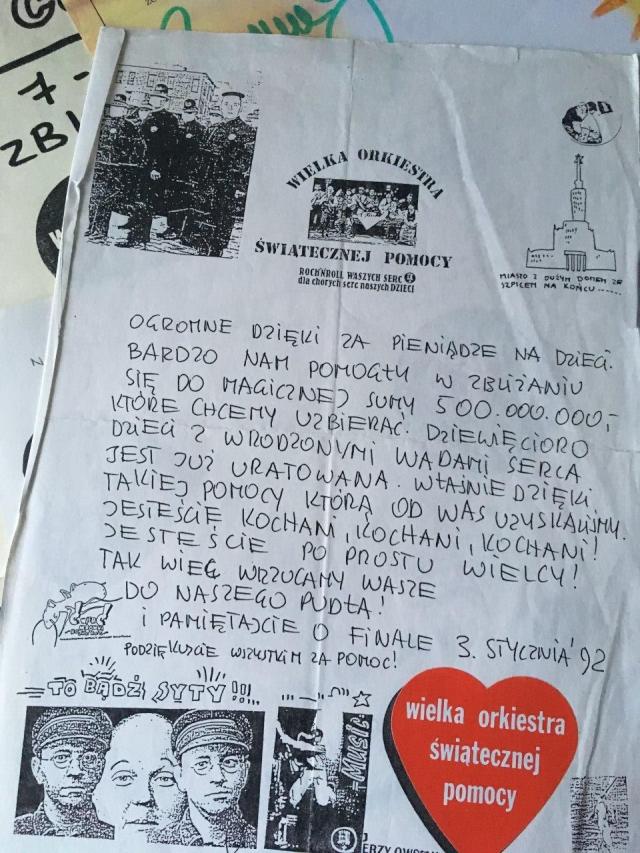 7-
ZBI
WIELKA ORKIESTRA
ŚWIĄTECZNEJ POMOCY
ROCK'N'ROLL WASZYCH SERC
dla chorych serc naszych DZIECI
MIASTO Z DUŻYM DOMEM ZE
SZPICEM NA KOŃCU......
OGROMNE DZIĘKI ZA PIENIĄDZE NA DZIECI.
BARDZO NAM POMOGŁY W ZBLIŻANIU
SIĘ DO MAGICZNEJ SUMY 500.000.000,-
KTÓRE CHCEMY UZBIERAĆ. DZIEWIĘCIORO
DZIECI Z WRODZONYMI WADAMI SERCA
JEST JUŻ URATOWANA. WŁAŚNIE DZIĘKI
TAKIEJ POMOCY KTÓRĄ OD WAS UZYSKALIŚMY.
JESTEŚCIE KOCHANI, KOCHANI, KOCHANI!
JESTEŚCIE PO PROSTU WIELCY!
TAK WIĘC WRZUCAMY WASZE
DO NASZEGO PUDŁA!
I PAMIĘTAJCIE O FINALE 3. STYCZNIA '92
PODZIĘKUJCIE WSZYSTKIM ZA POMOC!
TO BĄDŹ SYTY!!!
MUSIC
wielka orkiestra
świątecznej
pomocy